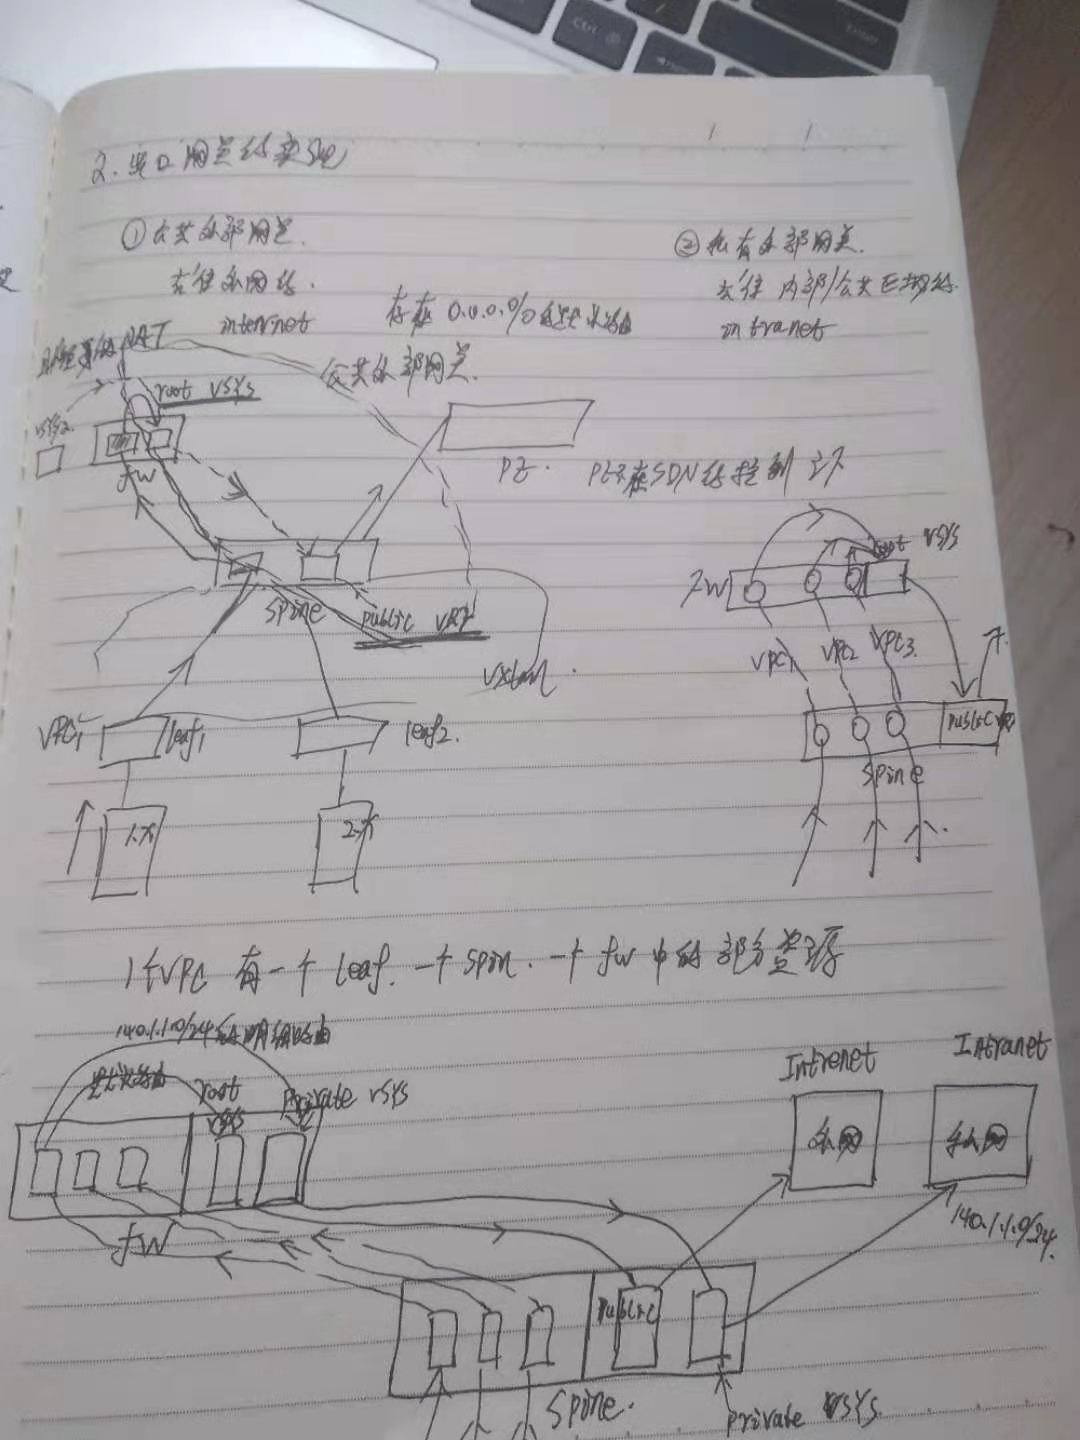 2. 出口网关的实现
① 公共外部网关.
去往公网络.
internet
② 私有外部网关.
去往 内部/公共区域网络.
intranet
存在 0.0.0.0/0 的默认路由
NAT
公共外部网关.
root VSYS
VSYS2
FW
PE.
PE不在SDN的控制之下
Spine
Public VRF
vxlan.
VPC1
leaf1
leaf2.
1.X
2.X
root VSYS
FW
VPC1
VPC2
VPC3.
Public VRF
Spine
1个VPC 有一个 leaf. 一个 spin. 一个 fw 中的部分资源
140.1.1.0/24 的明细路由
默认路由
root VSYS
Private VSYS
FW
Intrenet
公网
Intranet
私网
140.1.1.0/24.
Public
Spine.
Private VSYS